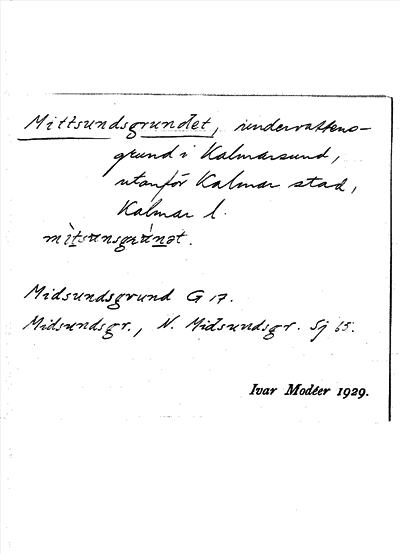 Mittsundsgrundet, undervattens-
grund i Kalmarsund,
utanför Kalmar stad,
Kalmar l.
Midsundsgrund G 17.
Midsundsgr., N. Midsundsgr. Sj 65.
Ivar Modéer 1929.